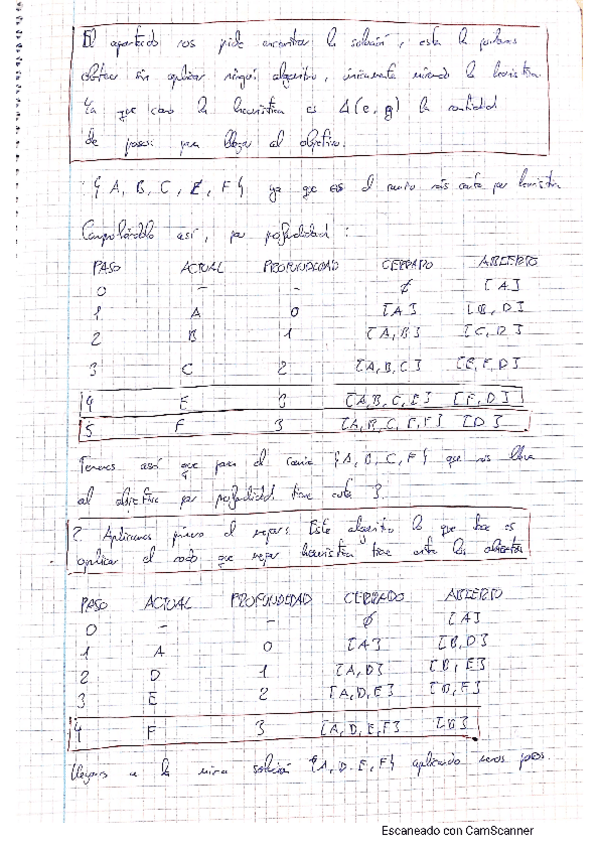 El apartado nos pide encontrar la solución, esta la podemos
obtener sin aplicar ningún algoritmo, únicamente mirando la heurística
Ya que como la heurística es Δ(e, g) la cantidad
de pasos para llegar al objetivo.
{A, B, C, E, F} ya que es el camino más corto por heurística
Comprobándolo así, por profundidad:
PASO ACTUAL PROFUNDIDAD CERRADO ABIERTO
0 - - ∅ [A]
1 A 0 [A] [B, D]
2 B 1 [A, B] [C, D]
3 C 2 [A, B, C] [E, F, D]
4 E 3 [A, B, C, E] [F, D]
5 F 3 [A, B, C, E, F] [D]
Tenemos así que para el camino {A, B, C, F} que nos lleva
al objetivo por profundidad tiene coste 3.
2. Aplicamos primero el mejor: Este algoritmo lo que hace es
aplicar el nodo que mejor heurística tiene entre los abiertos
PASO ACTUAL PROFUNDIDAD CERRADO ABIERTO
0 - - ∅ [A]
1 A 0 [A] [B, D]
2 D 1 [A, D] [B, E]
3 E 2 [A, D, E] [B, F]
4 F 3 [A, D, E, F] [B]
Llegamos a la misma solución {A, D, E, F} aplicando menos pasos.
Escaneado con CamScanner